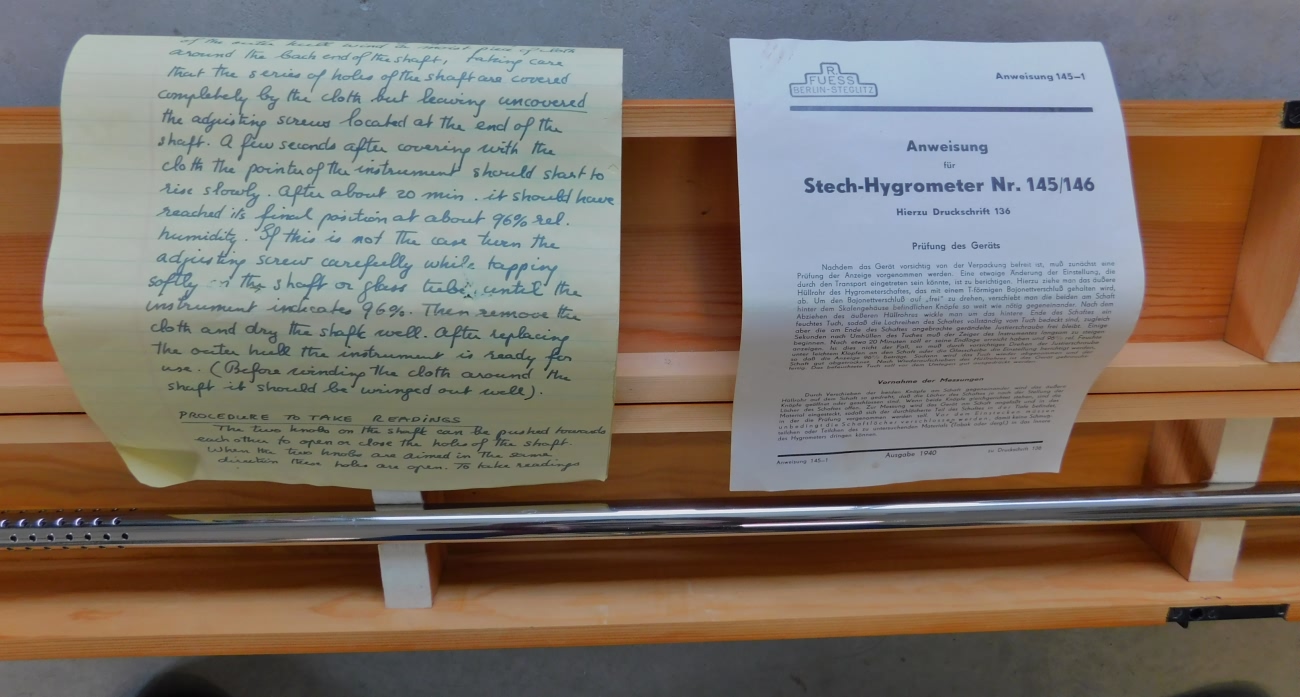 of the outer hull wind a moist piece of cloth
around the back end of the shaft, taking care
that the series of holes of the shaft are covered
completely by the cloth but leaving uncovered
the adjusting screws located at the end of the
shaft. A few seconds after covering with the
cloth the pointer of the instrument should start to
rise slowly. After about 20 min. it should have
reached its final position at about 96% rel.
humidity. If this is not the case turn the
adjusting screw carefully while tapping
softly on the shaft or glass tube, until the
instrument indicates 96%. Then remove the
cloth and dry the shaft well. After replacing
the outer hull the instrument is ready for
use. (Before winding the cloth around the
shaft it should be wringed out well).
PROCEDURE TO TAKE READINGS
The two knobs on the shaft can be pushed towards
each other to open or close the holes of the shaft.
When the two knobs are aimed in the same
direction these holes are open. To take readings
R
FUESS
BERLIN-STEGLITZ
Anweisung 145-1
Anweisung
für
Stech-Hygrometer Nr. 145/146
Hierzu Druckschrift 136
Prüfung des Geräts
Nachdem das Gerät vorsichtig von der Verpackung befreit ist, muß zunächst eine
Prüfung der Anzeige vorgenommen werden. Eine etwaige Änderung der Einstellung, die
durch den Transport eingetreten sein könnte, ist zu berichtigen. Hierzu ziehe man das äußere
Hüllrohr des Hygrometerschaftes, das mit einem T-förmigen Bajonettverschluß gehalten wird,
ab. Um den Bajonettverschluß auf „frei" zu drehen, verschiebt man die beiden am Schaft
hinter dem Skalengehäuse befindlichen Knöpfe so weit wie nötig gegeneinander. Nach dem
Abziehen des äußeren Hüllrohres wickle man um das hintere Ende des Schaftes ein
feuchtes Tuch, sodaß die Lochreihen des Schaftes vollständig vom Tuch bedeckt sind, zugleich
aber die am Ende des Schaftes angebrachte geränderte Justierschraube frei bleibt. Einige
Sekunden nach Umhüllen des Tuches muß der Zeiger des Instrumentes langsam zu steigen
beginnen. Nach etwa 20 Minuten soll er seine Endlage erreicht haben und 96% rel. Feuchte
anzeigen. Ist dies nicht der Fall, so muß durch
Vornahme der Messungen
Durch Verschieben der beiden Knöpfe am Schaft gegeneinander wird das äußere
unbedingt die Schaftlöcher verschlossen
des Hygrometers dringen können.
Anweisung 145-1
Ausgabe 1940
zu Druckschrift 136